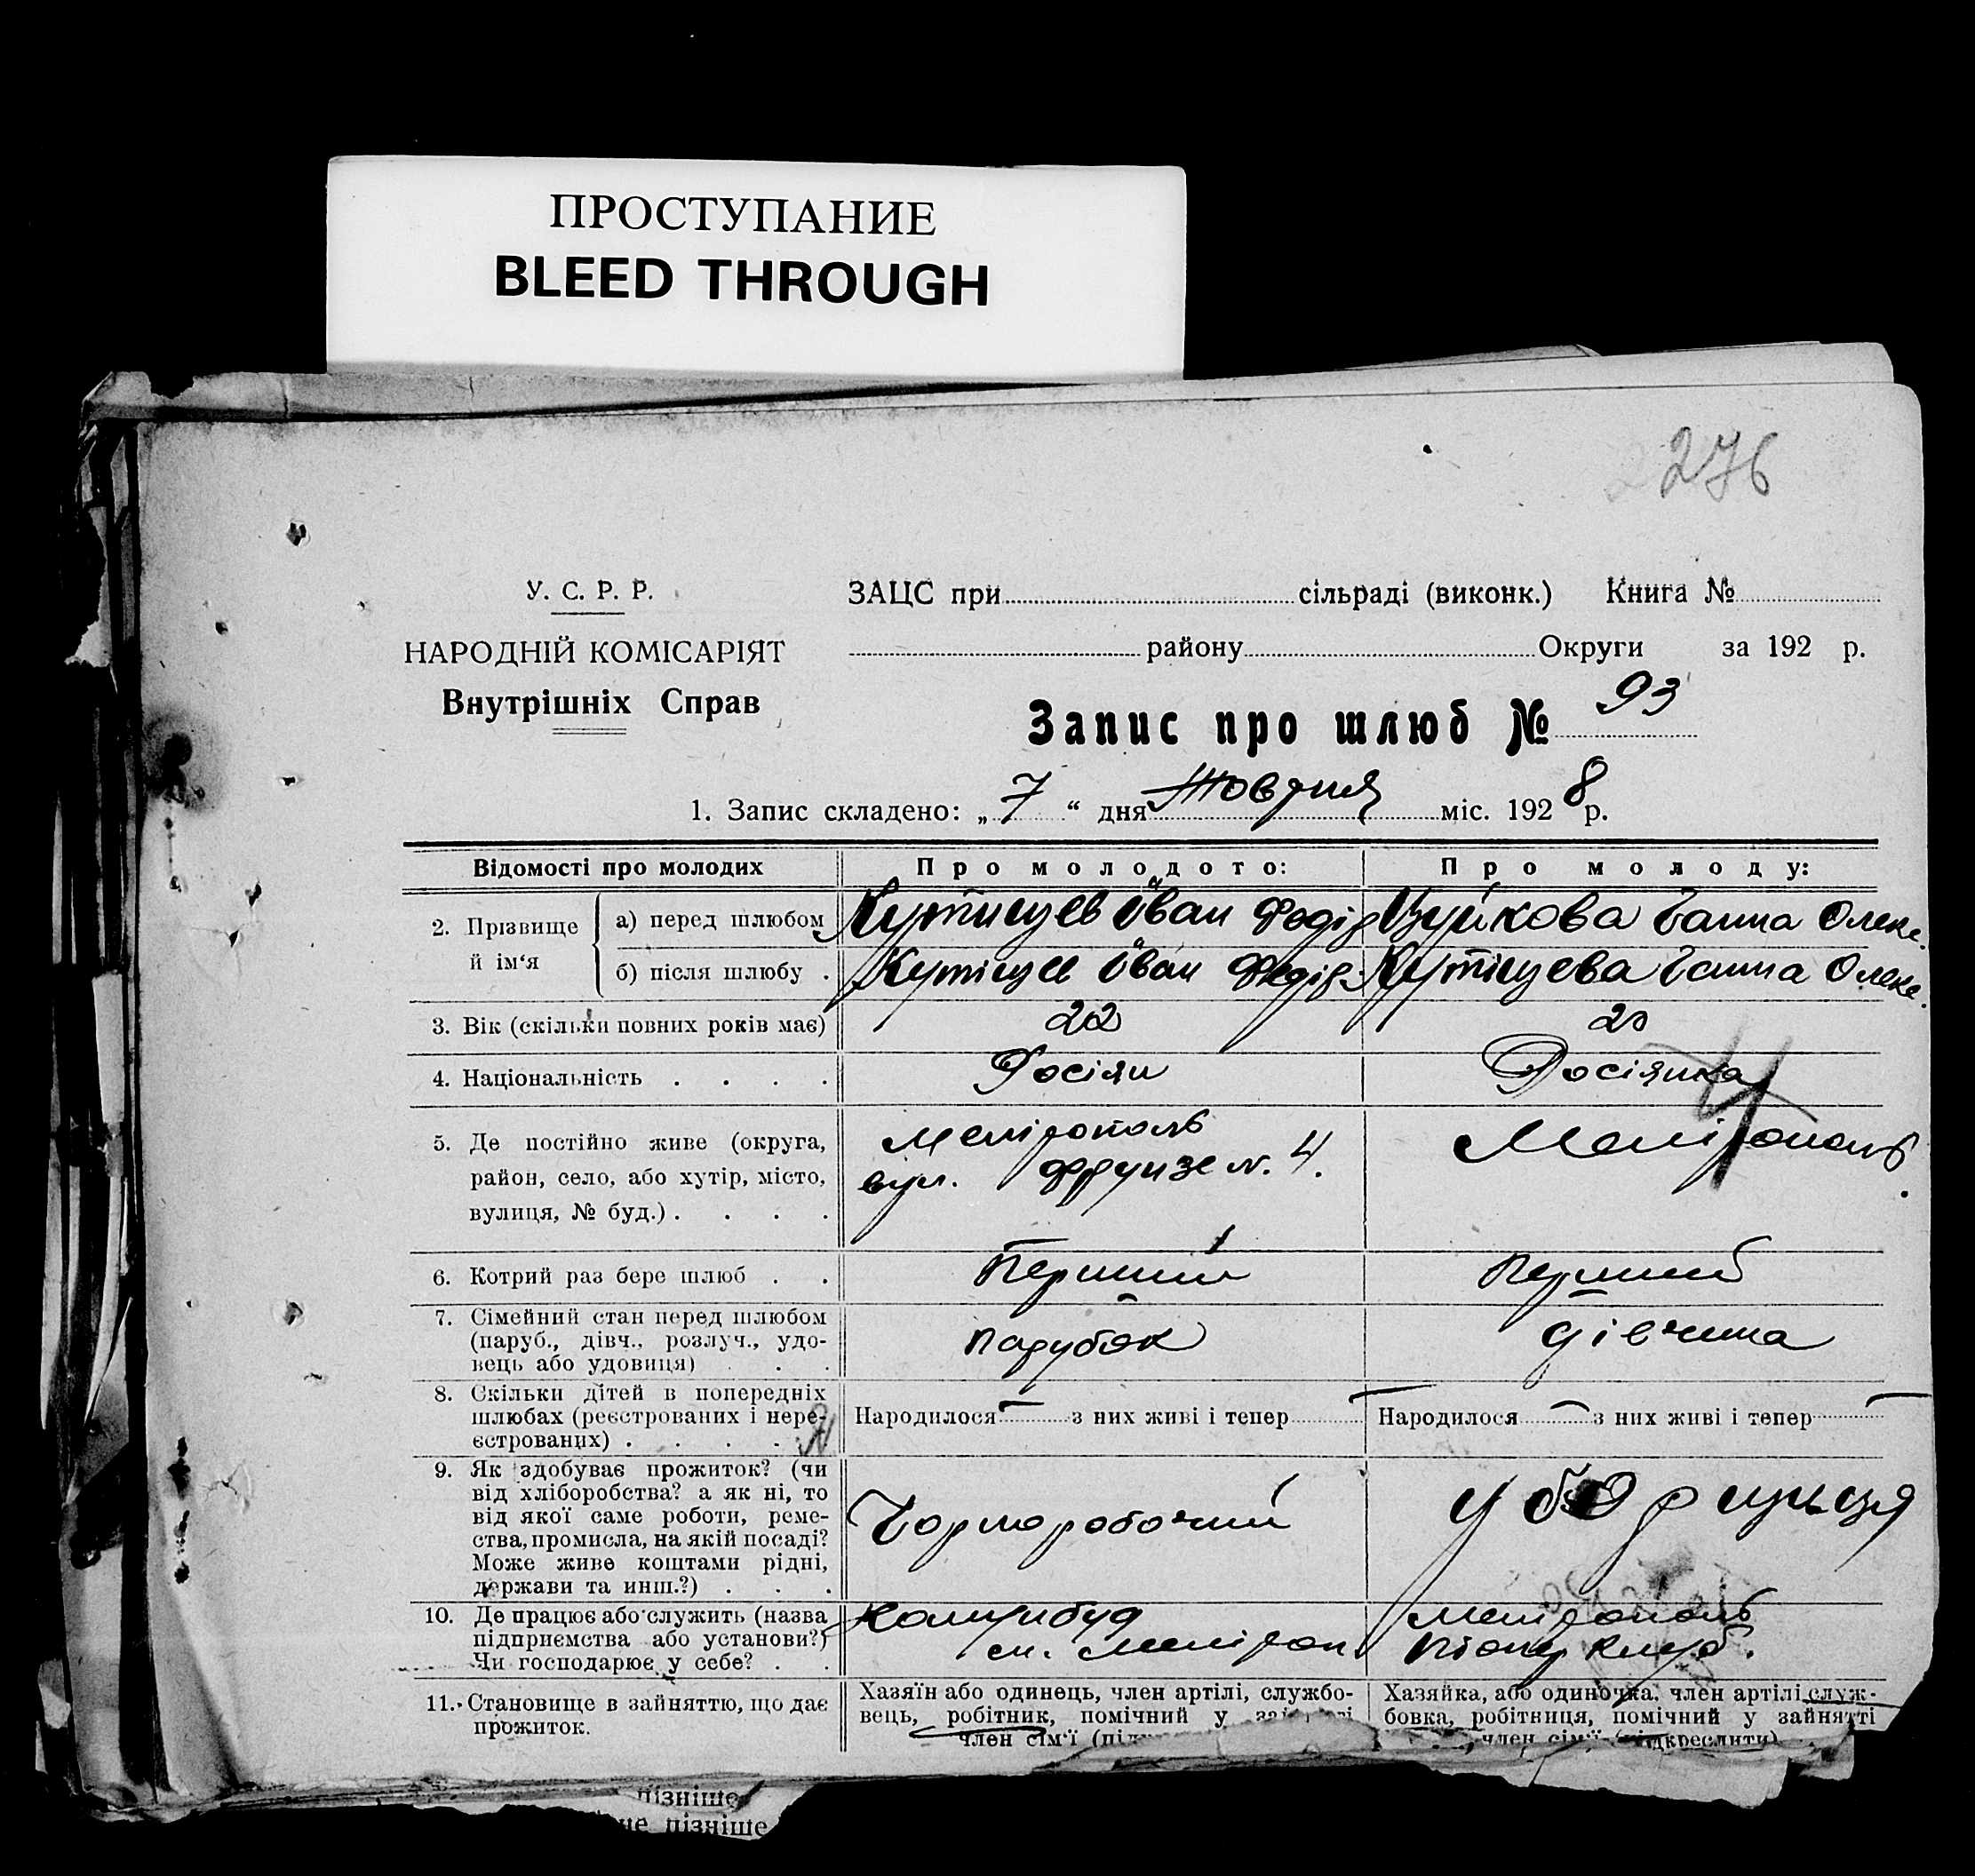 ПРОСТУПАНИЕ
BLEED THROUGH
276
У. С. Р. Р.
НАРОДНІЙ КОМІСАРІЯТ
Внутрішніх Справ
ЗАЦС при сільраді (виконк.) Книга №
району Округи за 192 р.
Запис про шлюб № 93
1. Запис складено: „ 7 “ дня Жовтня міс. 1928 р.
Відомості про молодих
Про молодого:
Про молоду:
2. Прізвище й ім‘я
а) перед шлюбом
Іван Федір
Зуйкова Ганна Олекс.
б) після шлюбу .
Іван Федір.
Ганна Олекс.
3. Вік (скільки повних років має)
22
20
4. Національність . . . .
Росіян
Росіянка
5. Де постійно живе (округа,
район, село, або хутір, місто,
вулиця, № буд.) . . . .
Мелітополь
вул. Фрунзе N. 4.
Мелітополь
6. Котрий раз бере шлюб . .
Перший
Перший
7. Сімейний стан перед шлюбом
(паруб., дівч., розлуч., удо-
вець або удовиця) . . .
парубок
дівчина
8. Скільки дітей в попередніх
шлюбах (реєстрованих і нере-
єстрованих) . . . .
Народилося з них живі і тепер
Народилося з них живі і тепер
9. Як здобуває прожиток? (чи
від хліборобства? а як ні, то
від якої саме роботи, реме-
ства, промисла, на якій посаді?
Може живе коштами рідні,
держави та инш.?) . . .
Чорноробочий
уборщиця
10. Де працює або служить (назва
підприємства або установи?)
Чи господарює у себе? . .
ст. Меліт
Мелітополь
клуб.
11. Становище в зайняттю, що дає
прожиток.
Хазяїн або одинець, член артілі, службо-
вець, робітник, помічний у
член сім‘ї
Хазяйка, або одиночка, член артілі, служ-
бовка, робітниця, помічний у зайнятті
член сім‘ї (підкреслити)
пізніше
не пізніше